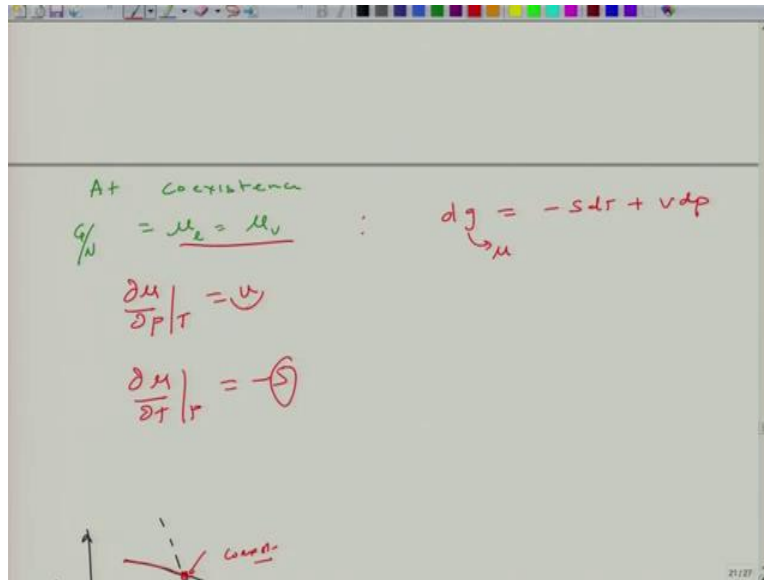 At coexistence
G/N = μ_l = μ_v : dg = -sdT + vdp
μ
∂μ/∂p|_T = v
∂μ/∂T|_P = -s
21/27